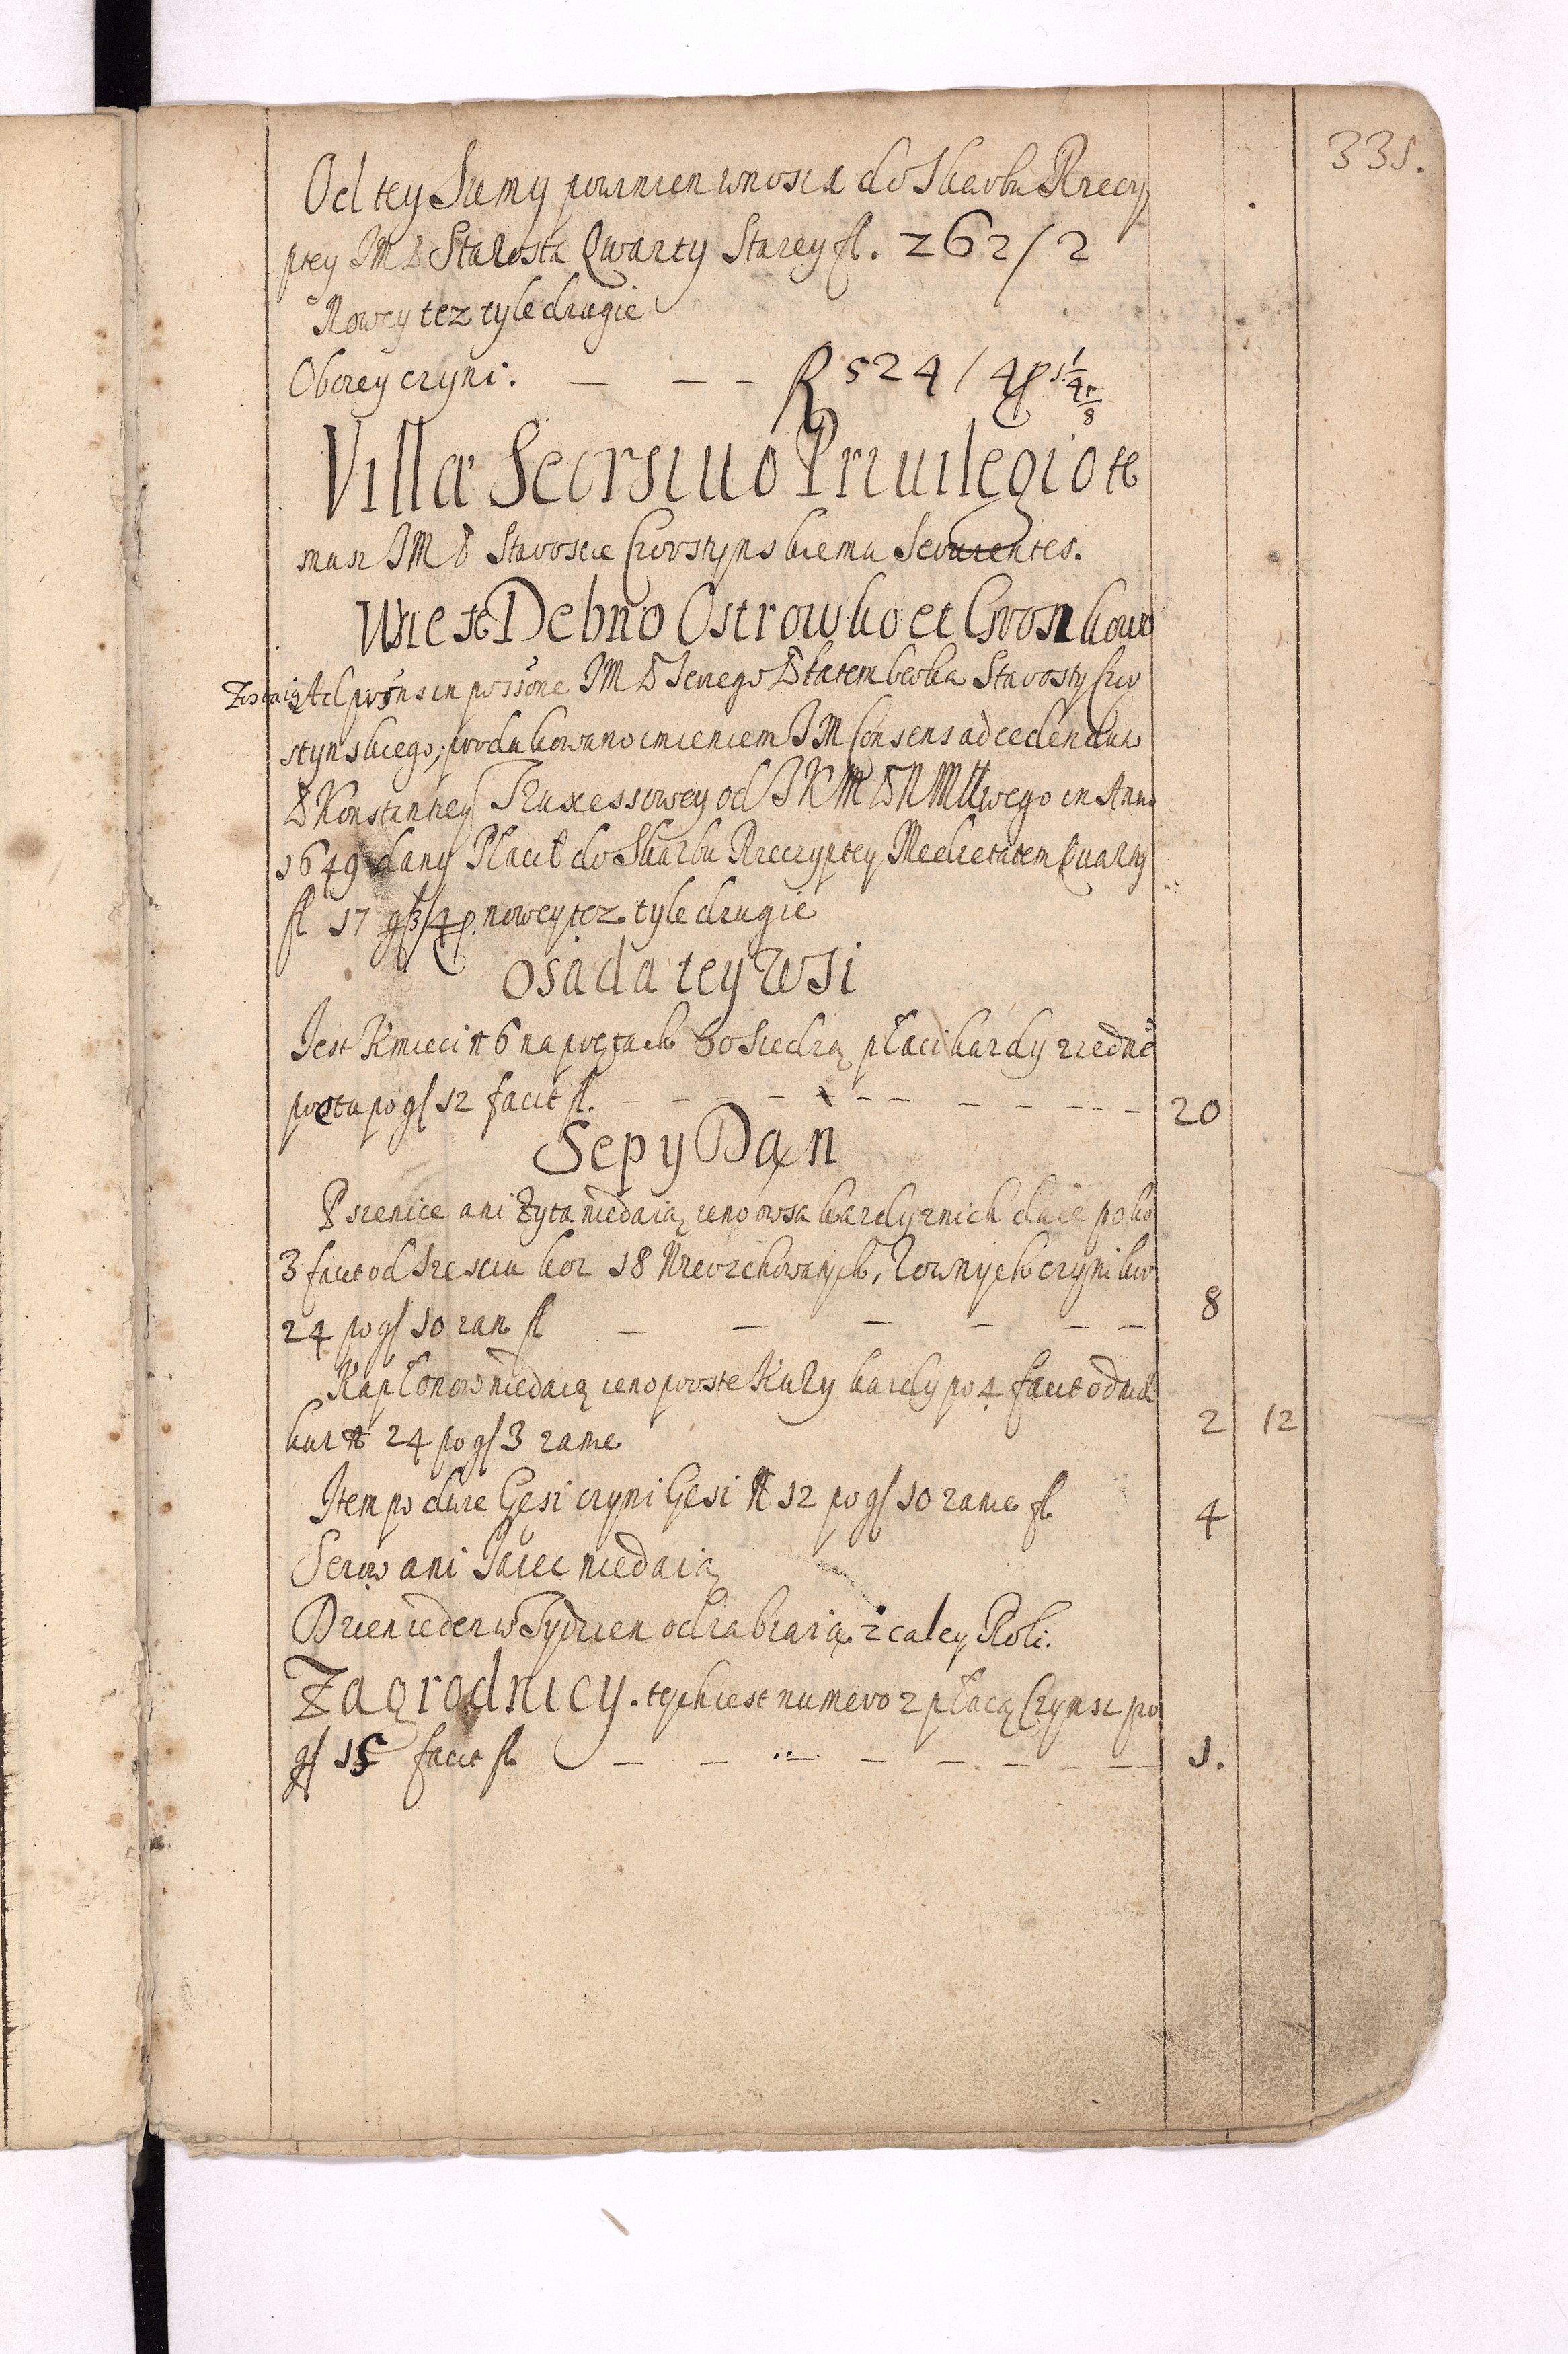 331.
Od tey Sumy powinien wnosić do Skarbu Rzeczy
ptey JMP Starosta Qwarty Starey fl. 262/2
Nowey tez tyle drugie
Oboiey czyni. — — — 524 / 4
Villæ Seorsivo Privilegio te
muz JMP Staroscie Krostynskiemu Servientes.
Wsie Debno Ostrowko et
Zostaią Ad prsns in possone JMP Jerzego Starosty Kro
stynskiego, produkowano imieniem JM Consens ad cedendum
P Konstantney Truxessowey od JKM PNMłłwego in Anno
1649 dany Płacił do Skarbu Rzeczyptey Medietatem Quarty
fl 17 g 3/4 nowey tez tyle drugie
Osada tey Wsi
Jest Kmieci N 6 na prętach 50 Siedzą płaci kazdy z iedne
pręta po g 12 facit fl. — — — — 20
Sep y Dań
Pszenice ani Zyta niedaią ieno owsa kazdy z nich daie po ko
3 facit od szesciu kor 18 Newrzchowatych, Rownych czyni kor
24 po g 10 rac fl — — — — — — 8
Kapłonow niedaią ieno proste Kury kazdy po 4 facit od nich
kur N 24 po g 3 racie 2 12
Item po dwie Gęsi czyni Gęsi N 12 po g 10 racie fl 4
Serow ani Jaiec niedaią
Dzien ieden w Tydzien odrabiaią z całey Roli.
Zagrodnicy. tych iest numero 2 płacą Czynsz po
g 15 facit fl — — — — — — — 1.